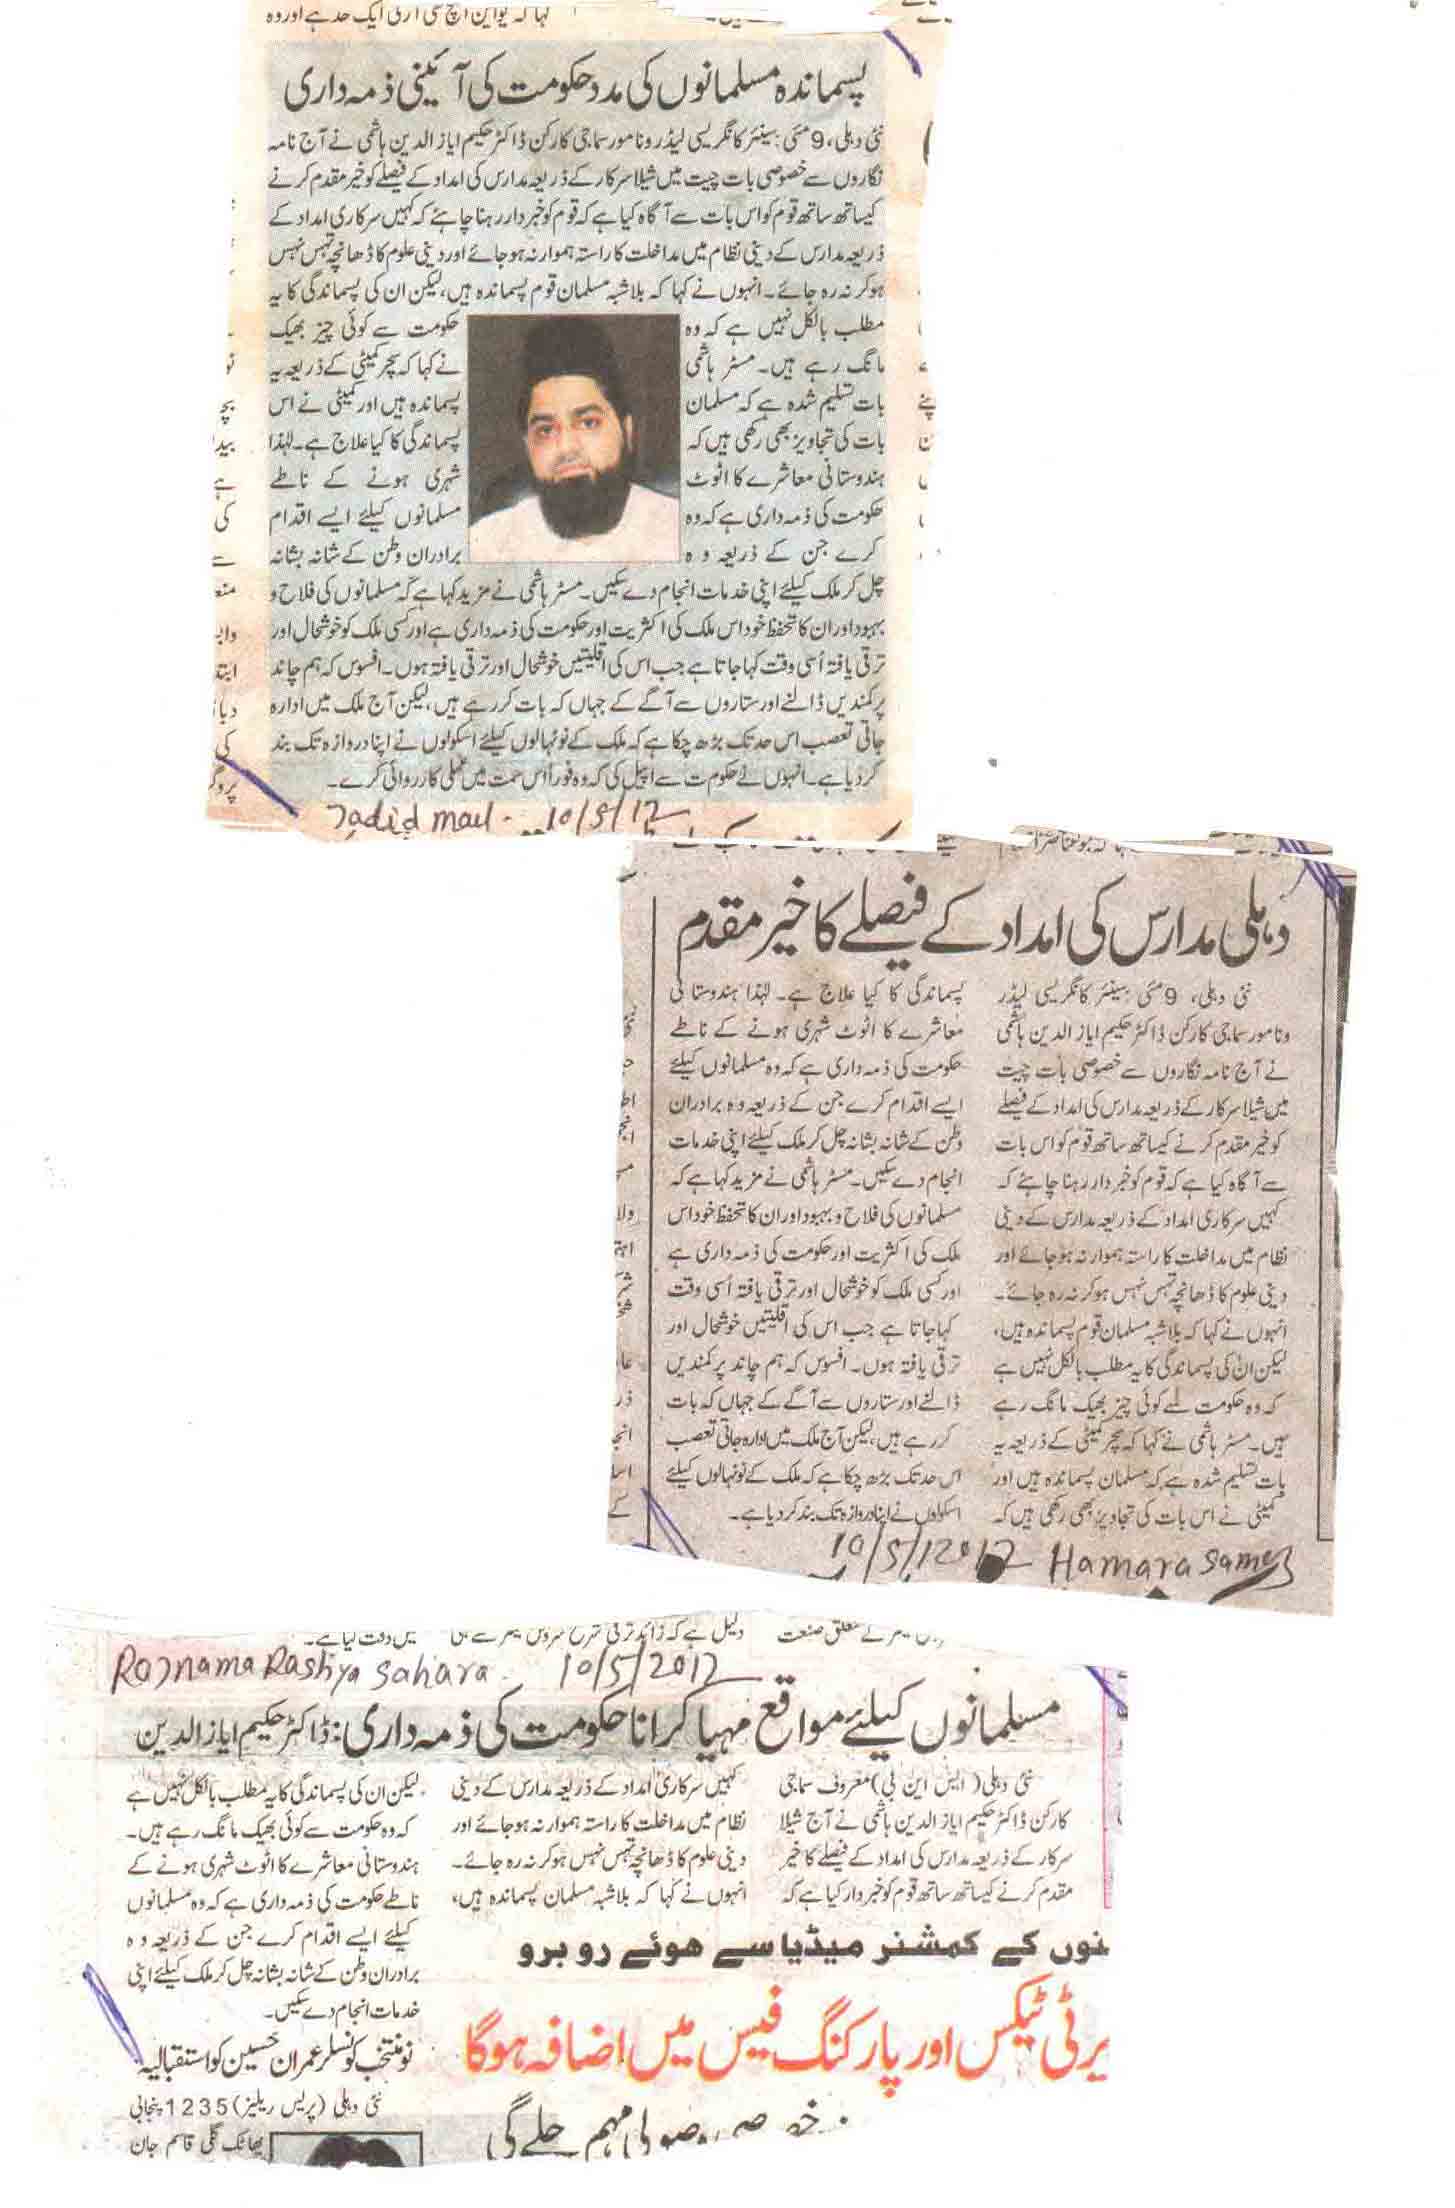 کہا کہ یو این ایچ سی آر کی ایک حد ہے اور وہ
پسماندہ مسلمانوں کی مدد حکومت کی آئینی ذمہ داری
نئی دہلی، 9 مئی: سینئر کانگریسی لیڈر ونامور سماجی کارکن ڈاکٹر حکیم ایاز الدین ہاشمی نے آج نامہ
نگاروں سے خصوصی بات چیت میں شیلا سرکار کے ذریعہ مدارس کی امداد کے فیصلے کو خیر مقدم کرنے
کیساتھ ساتھ قوم کو اس بات سے آگاہ کیا ہے کہ قوم کو خبردار رہنا چاہئے کہ کہیں سرکاری امداد کے
ذریعہ مدارس کے دینی نظام میں مداخلت کا راستہ ہموار نہ ہو جائے اور دینی علوم کا ڈھانچہ تہس نہس
ہو کر نہ رہ جائے۔ انہوں نے کہا کہ بلاشبہ مسلمان قوم پسماندہ ہیں، لیکن ان کی پسماندگی کا یہ
مطلب بالکل نہیں ہے کہ وہ حکومت سے کوئی چیز بھیک
مانگ رہے ہیں۔ مسٹر ہاشمی نے کہا کہ سچر کمیٹی کے ذریعہ یہ
بات تسلیم شدہ ہے کہ مسلمان پسماندہ ہیں اور کمیٹی نے اس
بات کی تجاویز بھی رکھی ہیں کہ پسماندگی کا کیا علاج ہے۔ لہٰذا
ہندوستانی معاشرے کا اٹوٹ شہری ہونے کے ناطے
حکومت کی ذمہ داری ہے کہ وہ مسلمانوں کیلئے ایسے اقدام
کرے جن کے ذریعہ وہ برادران وطن کے شانہ بشانہ
چل کر ملک کیلئے اپنی خدمات انجام دے سکیں۔ مسٹر ہاشمی نے مزید کہا ہے کہ مسلمانوں کی فلاح و
بہبود اور ان کا تحفظ خود اس ملک کی اکثریت اور حکومت کی ذمہ داری ہے اور کسی ملک کو خوشحال اور
ترقی یافتہ اُسی وقت کہا جاتا ہے جب اس کی اقلیتیں خوشحال اور ترقی یافتہ ہوں۔ افسوس کہ ہم چاند
پر کمندیں ڈالنے اور ستاروں سے آگے کے جہاں کہ بات کر رہے ہیں، لیکن آج ملک میں ادارہ
جاتی تعصب اس حد تک بڑھ چکا ہے کہ ملک کے نونہالوں کیلئے اسکولوں نے اپنا دروازہ تک بند
کر دیا ہے۔ انہوں نے حکومت سے اپیل کی کہ وہ فوراً اس سمت میں عملی کارروائی کرے۔
Jadid mail. 10/5/12
دہلی مدارس کی امداد کے فیصلے کا خیر مقدم
نئی دہلی، 9 مئی: سینئر کانگریسی لیڈر
ونامور سماجی کارکن ڈاکٹر حکیم ایاز الدین ہاشمی
نے آج نامہ نگاروں سے خصوصی بات چیت
میں شیلا سرکار کے ذریعہ مدارس کی امداد کے فیصلے
کو خیر مقدم کرنے کیساتھ ساتھ قوم کو اس بات
سے آگاہ کیا ہے کہ قوم کو خبردار رہنا چاہئے کہ
کہیں سرکاری امداد کے ذریعہ مدارس کے دینی
نظام میں مداخلت کا راستہ ہموار نہ ہو جائے اور
دینی علوم کا ڈھانچہ تہس نہس ہو کر نہ رہ جائے۔
انہوں نے کہا کہ بلاشبہ مسلمان قوم پسماندہ ہیں،
لیکن ان کی پسماندگی کا یہ مطلب بالکل نہیں ہے
کہ وہ حکومت سے کوئی چیز بھیک مانگ رہے
ہیں۔ مسٹر ہاشمی نے کہا کہ سچر کمیٹی کے ذریعہ یہ
بات تسلیم شدہ ہے کہ مسلمان پسماندہ ہیں اور
کمیٹی نے اس بات کی تجاویز بھی رکھی ہیں کہ
پسماندگی کا کیا علاج ہے۔ لہٰذا ہندوستانی
معاشرے کا اٹوٹ شہری ہونے کے ناطے
حکومت کی ذمہ داری ہے کہ وہ مسلمانوں کیلئے
ایسے اقدام کرے جن کے ذریعہ وہ برادران
وطن کے شانہ بشانہ چل کر ملک کیلئے اپنی خدمات
انجام دے سکیں۔ مسٹر ہاشمی نے مزید کہا ہے کہ
مسلمانوں کی فلاح و بہبود اور ان کا تحفظ خود اس
ملک کی اکثریت اور حکومت کی ذمہ داری ہے
اور کسی ملک کو خوشحال اور ترقی یافتہ اُسی وقت
کہا جاتا ہے جب اس کی اقلیتیں خوشحال اور
ترقی یافتہ ہوں۔ افسوس کہ ہم چاند پر کمندیں
ڈالنے اور ستاروں سے آگے کے جہاں کہ بات
کر رہے ہیں، لیکن آج ملک میں ادارہ جاتی تعصب
اس حد تک بڑھ چکا ہے کہ ملک کے نونہالوں کیلئے
اسکولوں نے اپنا دروازہ تک بند کر دیا ہے۔
10/5/2012 Hamara Samaj
Roznama Rashtya Sahara. 10/5/2012
مسلمانوں کیلئے مواقع مہیا کرانا حکومت کی ذمہ داری: ڈاکٹر حکیم ایاز الدین
نئی دہلی (ایس این بی) معروف سماجی
کارکن ڈاکٹر حکیم ایاز الدین ہاشمی نے آج شیلا
سرکار کے ذریعہ مدارس کی امداد کے فیصلے کا خیر
مقدم کرنے کیساتھ ساتھ قوم کو خبردار کیا ہے کہ
کہیں سرکاری امداد کے ذریعہ مدارس کے دینی
نظام میں مداخلت کا راستہ ہموار نہ ہو جائے اور
دینی علوم کا ڈھانچہ تہس نہس ہو کر نہ رہ جائے۔
انہوں نے کہا کہ بلاشبہ مسلمان پسماندہ ہیں،
لیکن ان کی پسماندگی کا یہ مطلب بالکل نہیں ہے
کہ وہ حکومت سے کوئی بھیک مانگ رہے ہیں۔
ہندوستانی معاشرے کا اٹوٹ شہری ہونے کے
ناطے حکومت کی ذمہ داری ہے کہ وہ مسلمانوں
کیلئے ایسے اقدام کرے جن کے ذریعہ وہ
برادران وطن کے شانہ بشانہ چل کر ملک کیلئے اپنی
خدمات انجام دے سکیں۔
نومنتخب کونسلر عمران حسین کو استقبالیہ
نئی دہلی (پریس ریلیز) 1235 پنجابی
پھاٹک گلی قاسم جان
نوں کے کمشنر میڈیا سے ہوئے روبرو
پرٹی ٹیکس اور پارکنگ فیس میں اضافہ ہوگا